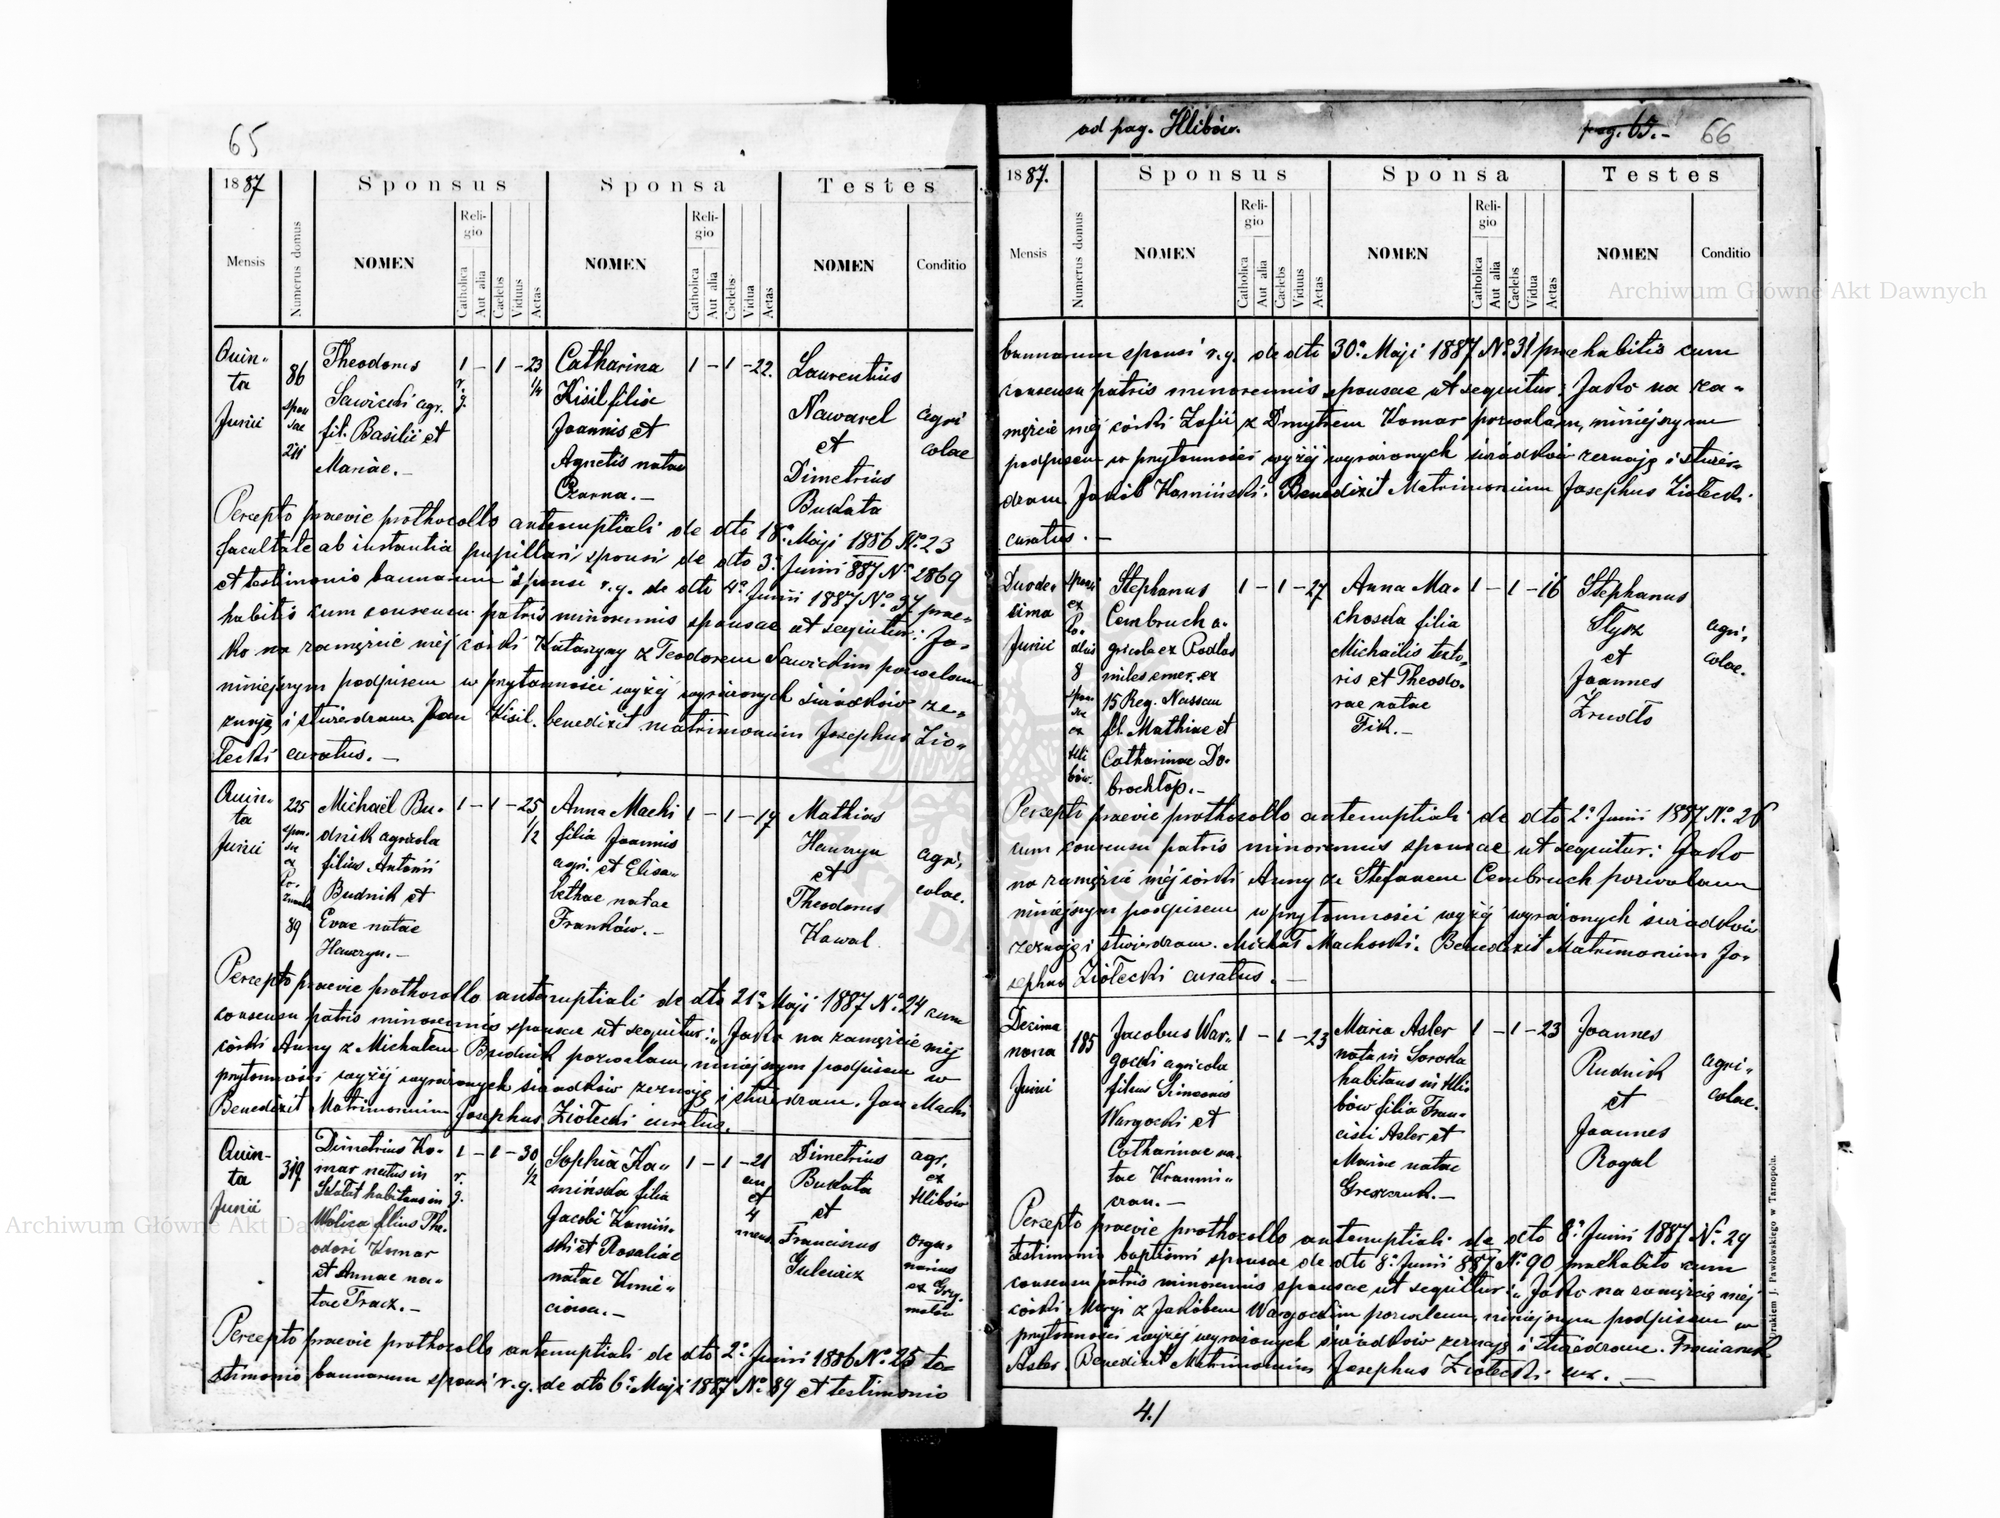 65
1887
Sponsus
Sponsa
Testes
Mensis
Numerus domus
NOMEN
Religio
Catholica
Aut alia
Caelebs
Viduus
Aetas
NOMEN
Religio
Catholica
Aut alia
Caelebs
Vidua
Aetas
NOMEN
Conditio
Quin-
ta
Junii
86
spon
sae
211
Theodorus
Sawicki agr.
fil. Basilii et
Mariae.-
1 - 1 - 23 1/4
r. g.
Catharina
Kisil filia
Joannis et
Agnetis natae
Czarna.-
1 - 1 - 22.
Laurentius
Nawarel
et
Dimetrius
Bukata
agri
colae
Percepto praevie prothocollo antenuptiali de dto 18a Maji 1886 No 23
facultate ab instantia pupillari sponsi de dto 3a Junii 887 No 2869
et testimonio bannorum sponsi r.g. de dto 4a Junii 1887 No 97 prae-
habitis cum consensu patris minorennis sponsae ut sequitur: Ja-
ko na zamęście mej córki Katarzyny z Teodorem Sawickim pozwalam
niniejszym podpisem w przytomności wyżej wyrażonych świadków ze-
znaję i stwierdzam. Jan Kisil. benedixit matrimonium Josephus Zio-
łecki curatus.-
Quin-
ta
Junii
225
spon-
sae
ex
89
Michaël Bu-
dnik agricola
filius Antonii
Budnik et
Evae natae
Hawryn.-
1 - 1 - 25 1/2
Anna Machi
filia Joannis
agri. et Elisa-
bethae natae
Franków.-
1 - 1 - 17
Mathias
Hawryn
et
Theodorus
Kawal
agri,
colae.
Percepto praevie prothocollo antenuptiali de dto 21a Maji 1887 No 24 cum
consensu patris minorennis sponsae ut sequitur: "Jako na zamęście mej
córki Anny z Michałem Budnik pozwalam, niniejszym podpisem w
przytomności wyżej wyrażonych świadków zeznaję i stwierdzam. Jan Machi
Benedixit Matrimonium Josephus Ziołecki curatus.
Quin-
ta
Junii
319.
Dimetrius Ko-
mar natus in
Skałat habitans in
Wolica filius The-
odori Komar
et Annae na-
tae Tracz.-
1 - 1 - 30 1/2
r. g.
Sophia Ka-
mińska filia
Jacobi Kamiń-
ski et Rosaliae
natae Kmie-
ciowa.-
1 - 1 - 21
an
et
4
mens.
Dimetrius
Bukata
et
Franciscus
Gulewicz
agr.
ex
Hlibów
orga-
narius
ex Grzy-
małów
Percepto praevie prothocollo antenuptiali de dto 2a Junii 1886 No 25 te-
stimonio bannorum sponsi r.g. de dto 6a Maji 1887 No 89 et testimonio
ad pag. Hlibów.
pag. 65.-
66
1887.
Sponsus
Sponsa
Testes
Mensis
Numerus domus
NOMEN
Religio
Catholica
Aut alia
Caelebs
Viduus
Aetas
NOMEN
Religio
Catholica
Aut alia
Caelebs
Vidua
Aetas
NOMEN
Conditio
bannorum sponsi r.g. de dto 30a Maji 1887 No 31 praehabitis cum
consensu patris minorennis sponsae ut sequitur: Jako na za-
męście mej córki Zofii z Dmytrem Komar pozwalam, niniejszym
podpisem w przytomności wyżej wyrażonych świadków zeznaję i stwier-
dzam. Jakób Kamiński. Benedixit Matrimonium Josephus Ziołecki
curatus.-
Duode-
cima
Junii
sponsi
ex
Po-
dlus
8
spon-
sae
ex
Hli
bów.
Stephanus
Cembruch a-
gricola ex Podlas
miles emer. ex
15 Reg. Nassau
fil. Mathiae et
Catharinae Do-
brochłop.-
1 - 1 - 27
Anna Ma-
choska filia
Michaëlis texto-
ris et Theodo-
rae natae
Fik.-
1 - 1 - 16
Stephanus
Slysz
et
Joannes
Zrudło
agri,
colae.
Percepto praevie prothocollo antenuptiali de dto 2a Junii 1887 No 26
cum consensu patris minorennis sponsae ut sequitur: Jako
na zamęście mej córki Anny ze Stefanem Cembruch pozwalam
niniejszym podpisem w przytomności wyżej wyrażonych świadków
zeznaję i stwierdzam. Michał Machoski. Benedixit Matrimonium Jo-
sephus Ziołecki curatus.-
Decima
nona
Junii
185
Jacobus War-
gocki agricola
filius Simeonis
Wargocki et
Catharinae na-
tae Krawni-
czan.-
1 - 1 - 23
Maria Asler
nata in Soroka
habitans in Hli
bów filia Fran-
cisci Asler et
Mariae natae
Greszczuk.-
1 - 1 - 23
Joannes
Rudnik
et
Joannes
Rogal
agri-
colae.
Percepto praevie prothocollo antenuptiali de dto 8a Junii 1887 No 29
testimonio baptismi sponsae de dto 8a Junii 887 No 90 praehabito cum
consensu patris minorennis sponsae ut sequitur: "Jako na zamęście mej
córki Maryi z Jakóbem Wargockim pozwalam, niniejszym podpisem w
przytomności wyżej wyrażonych świadków zeznaję i stwierdzam. Franciszek
Asler. Benedixit Matrimonium Josephus Ziołecki cur.-
Drukiem J. Pawłowskiego w Tarnopolu.
41
Archiwum Główne Akt Dawnych
Archiwum Główne Akt Dawnych